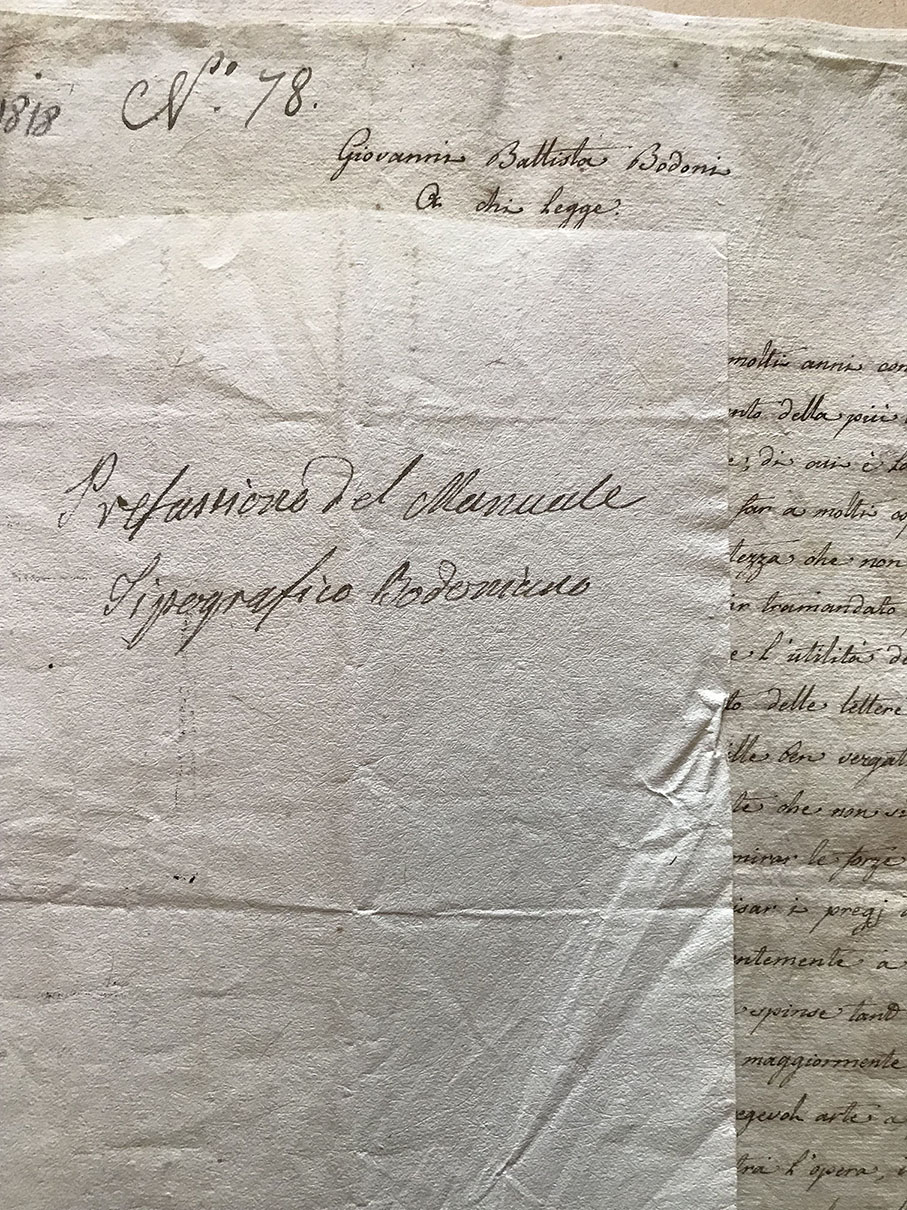 1818 N.ro 78.
Giovanni Battista Bodoni
A chi legge.
Prefassione del Manuale
Tipografico Bodoniano
molti anni con
nto della più
e, di cui è
far a molti
tezza che non
ir tramandato
e l'utilità d
to delle lettere
ille ben vergat
te che non
mirar le forze
isar i pregj
ntemente a
spinse tant
maggiormente
egevol arte a
trà l'opera,